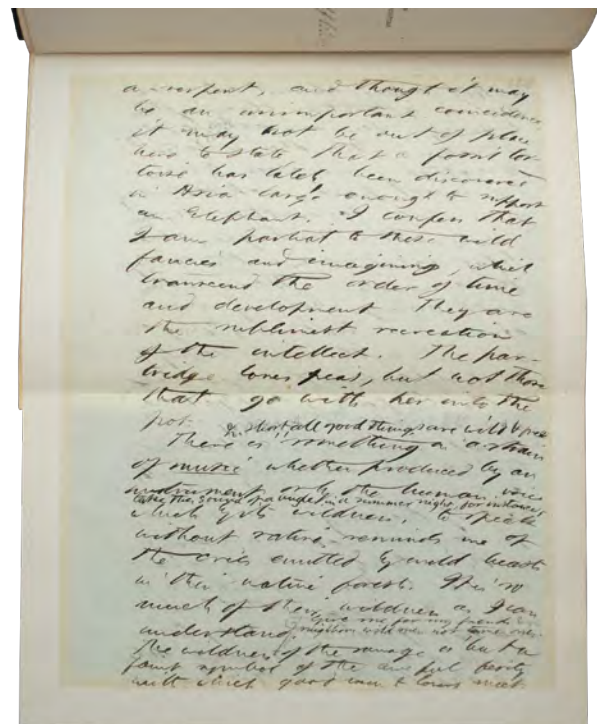 a serpent, and though it may
be an unimportant coincidence
it may not be out of place
here to state that a fossil tor-
toise has lately been discovered
in Asia large enough to support
an Elephant. I confess that
I am partial to these wild
fancies and imaginings, which
transcend the order of time
and development. They are
the sublimest recreation
of the intellect. The par-
tridge loves peas, but not those
that go with her into the
pot.
In short all good things are wild & free
There is something in a strain
of music whether produced by an
instrument or by the human voice
take the sound of a bugle in a summer night for instance,
which by its wildness, to speak
without satire reminds me of
the cries emitted by wild beasts
in their native forests. It is so
much of their wildness as I can
understand.
Give me for my friends &
neighbors wild men not tame ones.
The wildness of the savage is but a
faint symbol of the awful ferity
with which good men & lovers meet.